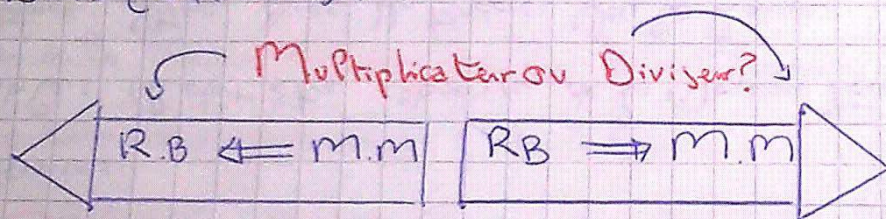 Multiplicateur ou Diviseur?
R.B ⇐ M.M RB ⇒ M.M